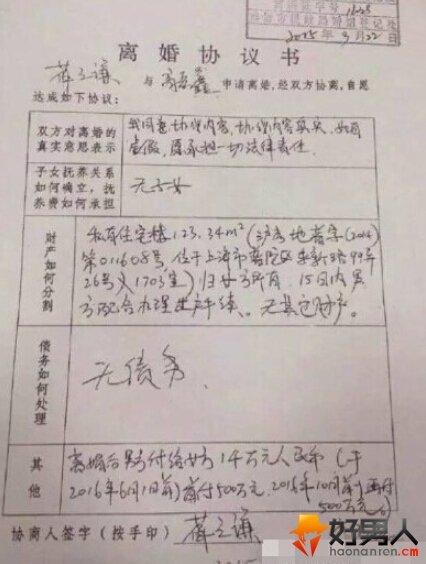 2015年9月22日
离婚协议书
薛之谦 与 高磊鑫 申请离婚,经双方协商,自愿
达成如下协议:
双方对离婚的
真实意思表示
我同意协议内容,协议内容真实,如有
虚假,愿承担一切法律责任.
子女抚养关系
如何确立,抚
养费如何承担
无子女
财产如何分割
私有住宅楼123.34m²(沪房地普字(2014)
第011608号,位于上海市普陀区
26号1703室)归女方所有.15日内男
方配合办理过户手续.无其它财产.
债务如何处理
无债务.
其他
离婚后男方付给女方1千万元人民币(于
2016年6月1日前)首付500万元,2016年10月前再付
500万元
协商人签字(按手印) 薛之谦
2015
好男人
haonanren.cm